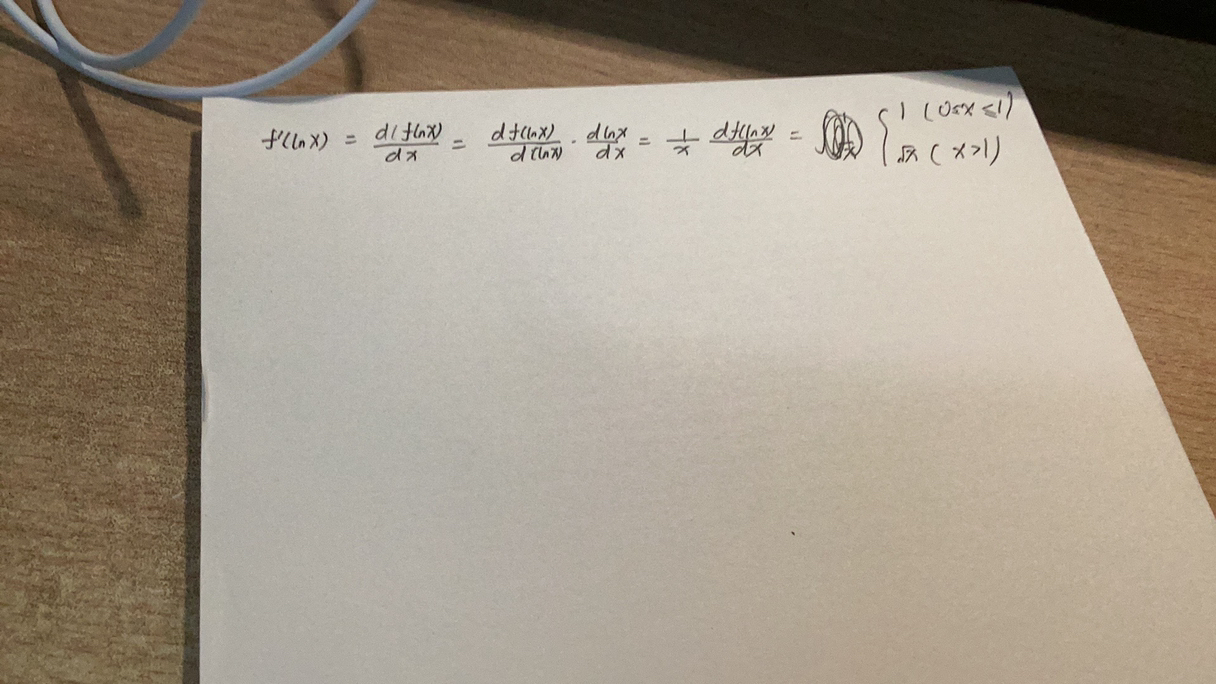 f'(lnx) = d(f(lnx)/dx = df(lnx)/d(lnx) · dlnx/dx = 1/x df(lnx)/dx = { 1 (0≤x≤1) √x (x>1)